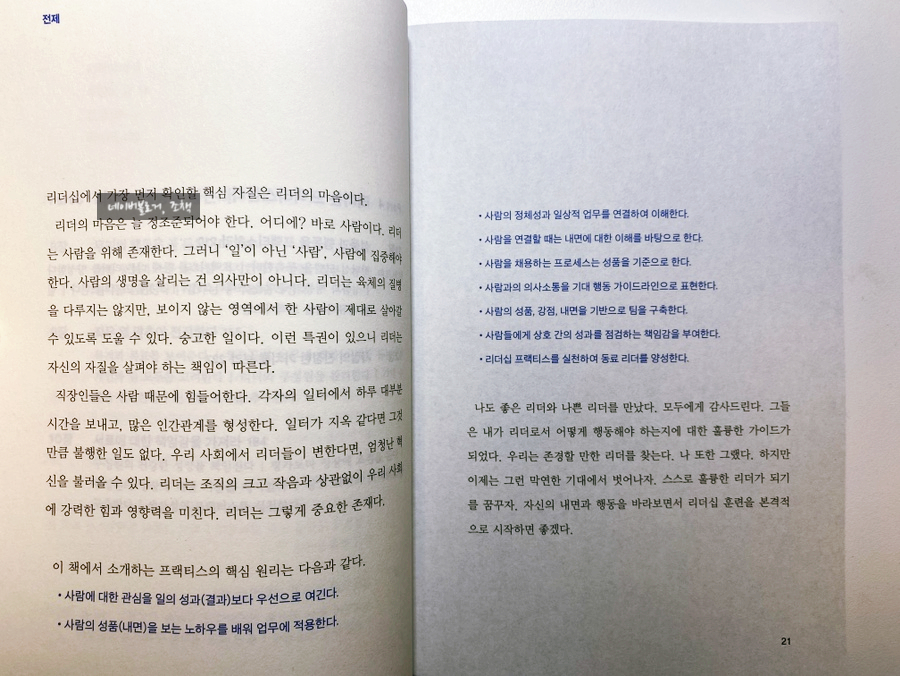 전제
리더십에서 가장 먼저 확인할 핵심 자질은 리더의 마음이다.
네이버블로거, 조책
리더의 마음은 늘 정조준되어야 한다. 어디에? 바로 사람이다. 리더
는 사람을 위해 존재한다. 그러니 ‘일’이 아닌 ‘사람’, 사람에 집중해야
한다. 사람의 생명을 살리는 건 의사만이 아니다. 리더는 육체의 질병
을 다루지는 않지만, 보이지 않는 영역에서 한 사람이 제대로 살아갈
수 있도록 도울 수 있다. 숭고한 일이다. 이런 특권이 있으니 리더는
자신의 자질을 살펴야 하는 책임이 따른다.
직장인들은 사람 때문에 힘들어한다. 각자의 일터에서 하루 대부분
시간을 보내고, 많은 인간관계를 형성한다. 일터가 지옥 같다면 그것
만큼 불행한 일도 없다. 우리 사회에서 리더들이 변한다면, 엄청난 혁
신을 불러올 수 있다. 리더는 조직의 크고 작음과 상관없이 우리 사회
에 강력한 힘과 영향력을 미친다. 리더는 그렇게 중요한 존재다.
이 책에서 소개하는 프랙티스의 핵심 원리는 다음과 같다.
• 사람에 대한 관심을 일의 성과(결과)보다 우선으로 여긴다.
• 사람의 성품(내면)을 보는 노하우를 배워 업무에 적용한다.
• 사람의 정체성과 일상적 업무를 연결하여 이해한다.
• 사람을 연결할 때는 내면에 대한 이해를 바탕으로 한다.
• 사람을 채용하는 프로세스는 성품을 기준으로 한다.
• 사람과의 의사소통을 기대 행동 가이드라인으로 표현한다.
• 사람의 성품, 강점, 내면을 기반으로 팀을 구축한다.
• 사람들에게 상호 간의 성과를 점검하는 책임감을 부여한다.
• 리더십 프랙티스를 실천하여 동료 리더를 양성한다.
나도 좋은 리더와 나쁜 리더를 만났다. 모두에게 감사드린다. 그들
은 내가 리더로서 어떻게 행동해야 하는지에 대한 훌륭한 가이드가
되었다. 우리는 존경할 만한 리더를 찾는다. 나 또한 그랬다. 하지만
이제는 그런 막연한 기대에서 벗어나자. 스스로 훌륭한 리더가 되기
를 꿈꾸자. 자신의 내면과 행동을 바라보면서 리더십 훈련을 본격적
으로 시작하면 좋겠다.
21